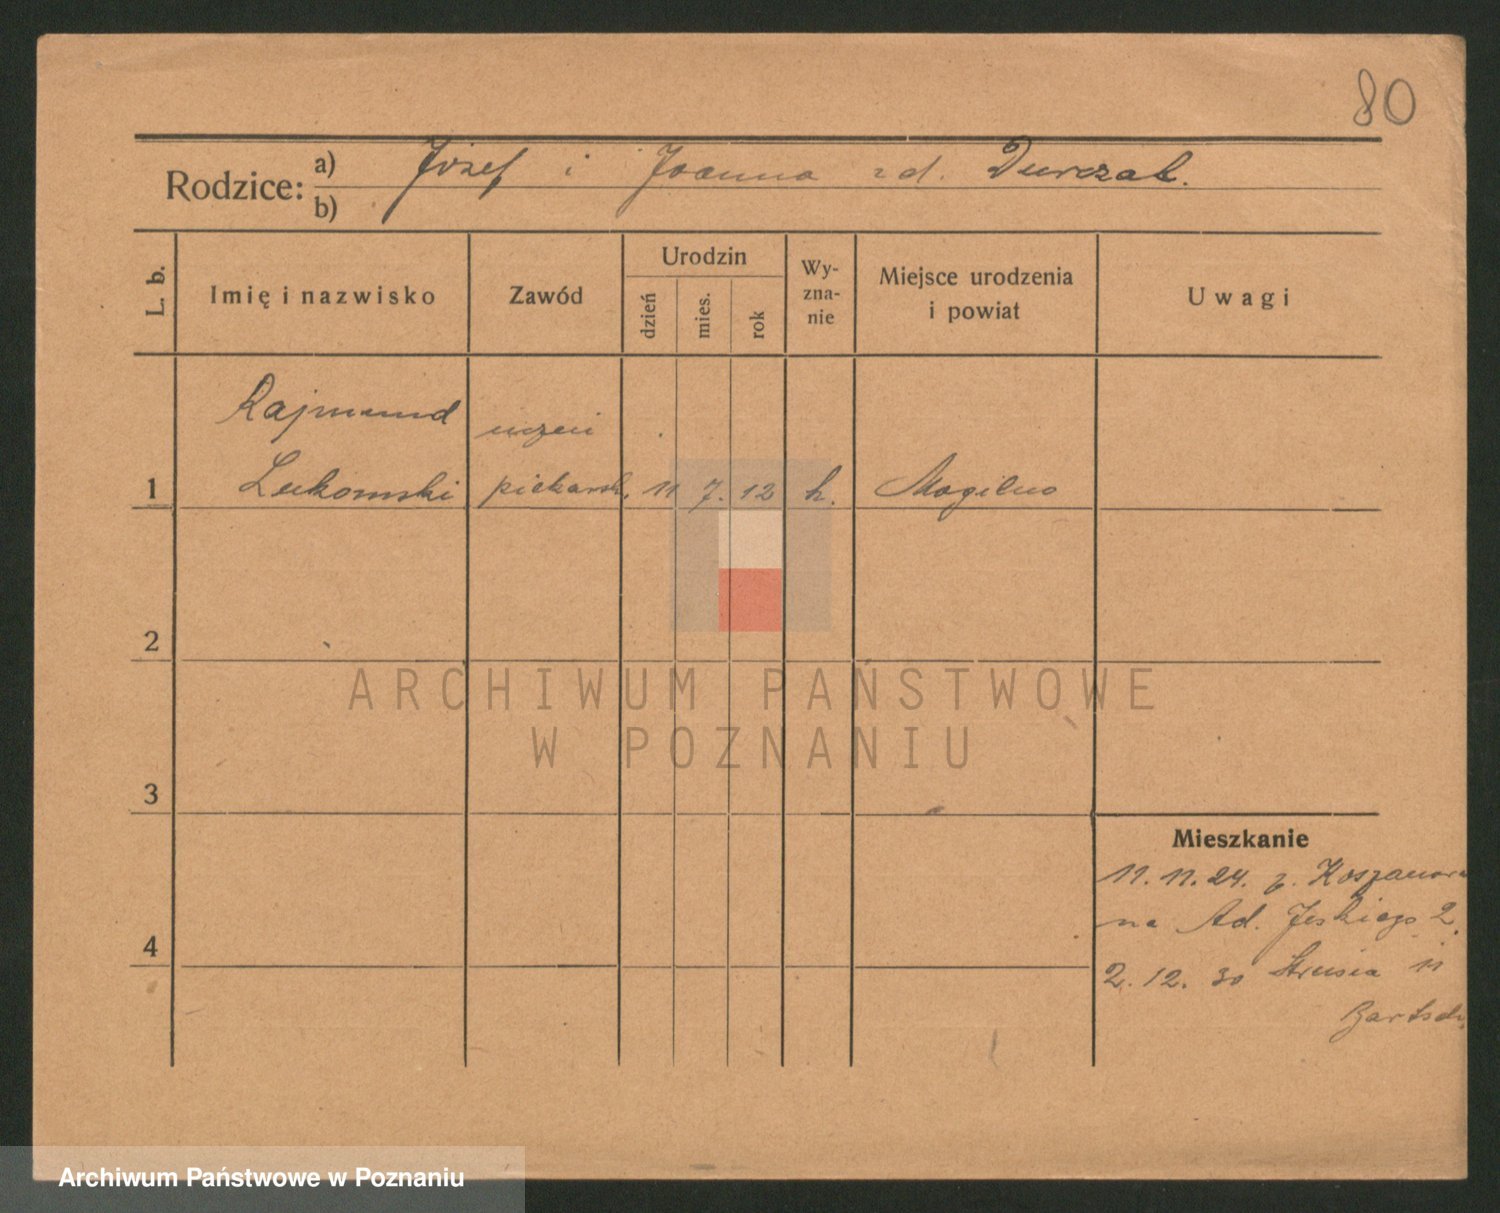 80
Rodzice: a) Józef i Joanna zd. Durczak.
b)
L. b. Imię i nazwisko Zawód Urodzin dzień mies. rok Wy-zna-nie Miejsce urodzenia i powiat Uwagi
Rajmund uczeń
1 Lukomski piekarsk. 11 7. 12 k. Mogilno
2
ARCHIWUM PAŃSTWOWE
W POZNANIU
3
Mieszkanie
11. 11. 24. z. Koszanowa
na Ad. Jeskiego 2.
4
2. 12. 30 Strusia 11
Bartsch
Archiwum Państwowe w Poznaniu